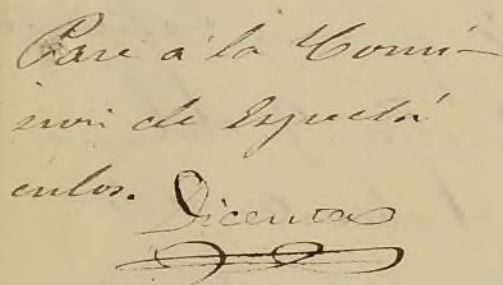 Pase á la Comi-
sion de Espectá
culos.
Dicenta